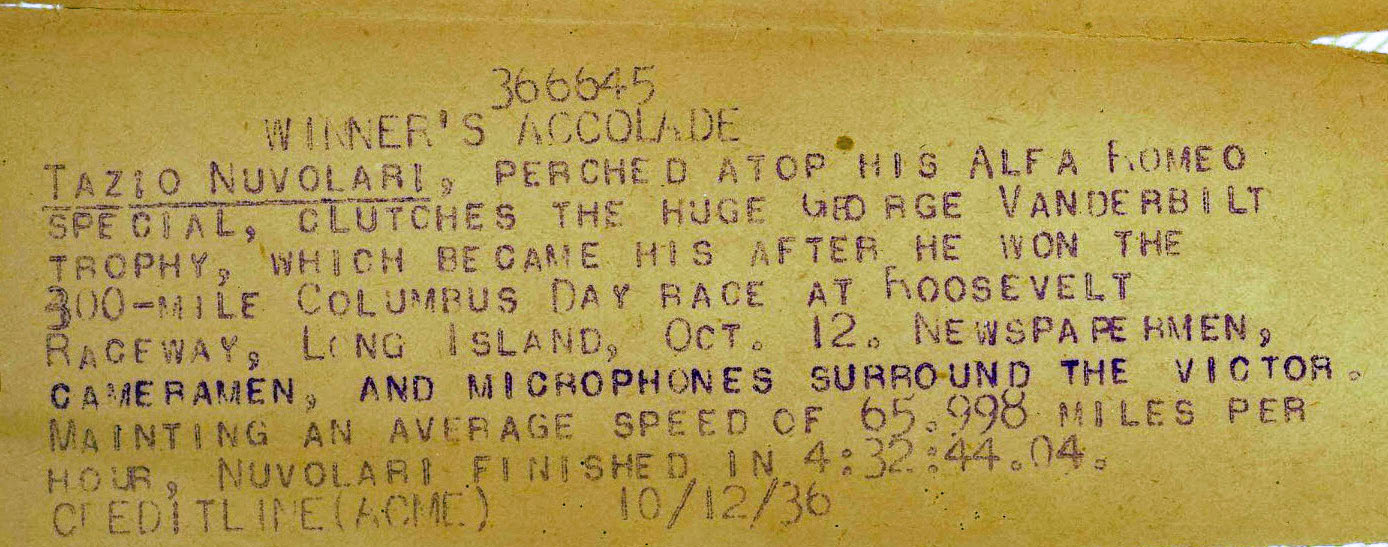 366645
WINNER'S ACCOLADE
TAZIO NUVOLARI, PERCHED ATOP HIS ALFA ROMEO
SPECIAL, CLUTCHES THE HUGE GEORGE VANDERBILT
TROPHY, WHICH BECAME HIS AFTER HE WON THE
300-MILE COLUMBUS DAY RACE AT ROOSEVELT
RACEWAY, LONG ISLAND, OCT. 12. NEWSPAPERMEN,
CAMERAMEN, AND MICROPHONES SURROUND THE VICTOR.
MAINTING AN AVERAGE SPEED OF 65.998 MILES PER
HOUR, NUVOLARI FINISHED IN 4:32:44.04.
CREDITLINE(ACME) 10/12/36